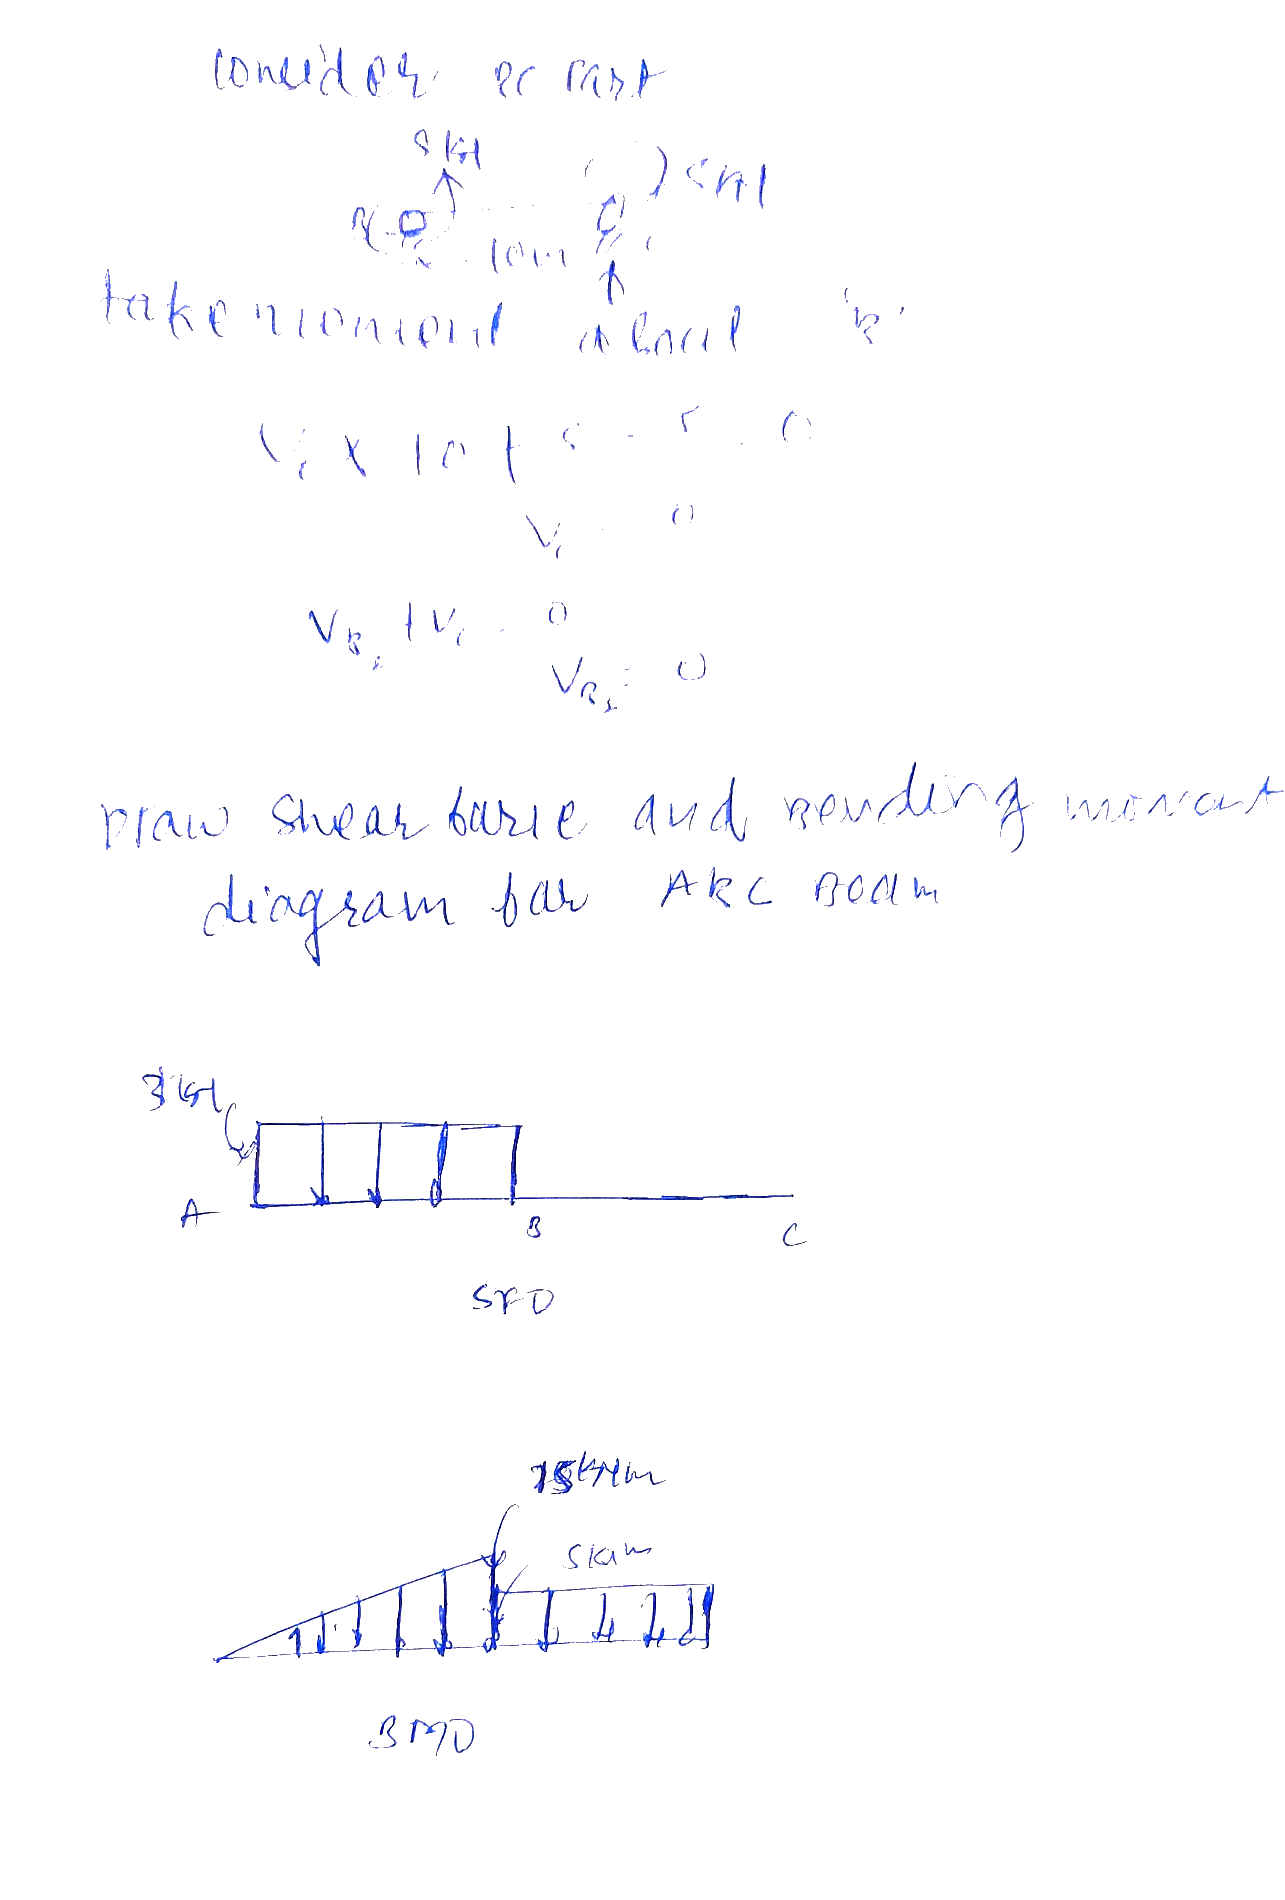 consider BC part
5 KN
5 KN
B
10m
take moment about 'B'
Vc x 10 + 5 - 5 = 0
Vc = 0
VB2 + Vc = 0
VB2 = 0
Draw shear force and Bending moment
diagram for ABC Beam
3 KN
A
B
C
SFD
15 kNm
5 kNm
BMD